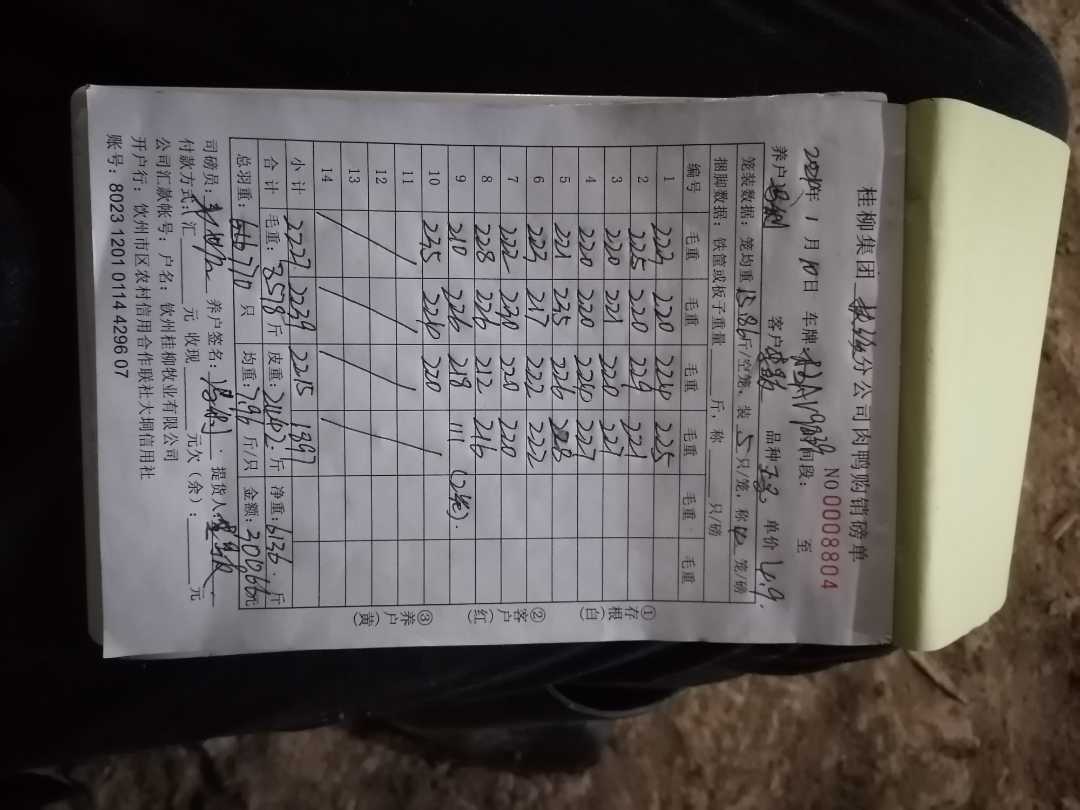 桂柳集团 钦缘分公司肉鸭购销磅单
NO 00008804
年 1 月 10 日 车牌: 时间段: 至
养户 客户 品种 单价 4.9
笼装数据: 笼均重 15.86 斤/空笼、装 5 只/笼, 称 笼/磅
捆脚数据: 铁筐或板子重量 斤, 称 只/磅
编号 毛重 毛重 毛重 毛重 毛重 毛重
1 223 220 220 225
2 225 220 229 221
3 220 221 220 227
4 220 220 220 227
5 221 235 226 228
6 223 217 222 222
7 222 230 220 220
8 228 226 212 216
9 210 226 218 111
10 235 220 220
11
12
13
14
小计 2227 2239 2215 1897
合计 毛重: 8578 斤 皮重: 2442 斤 净重: 6136 斤
总羽重: 770 只 均重: 7.96 斤/只 金额: 元
司磅员: 养户签名: 提货人:
付款方式: 汇 元 收现 元欠(余): 元
公司汇款帐号: 户名: 钦州桂柳牧业有限公司
开户行: 钦州市区农村信用合作联社大垌信用社
账号: 8023 1201 0114 4296 07
①存根(白)
②客户(红)
③养户(黄)